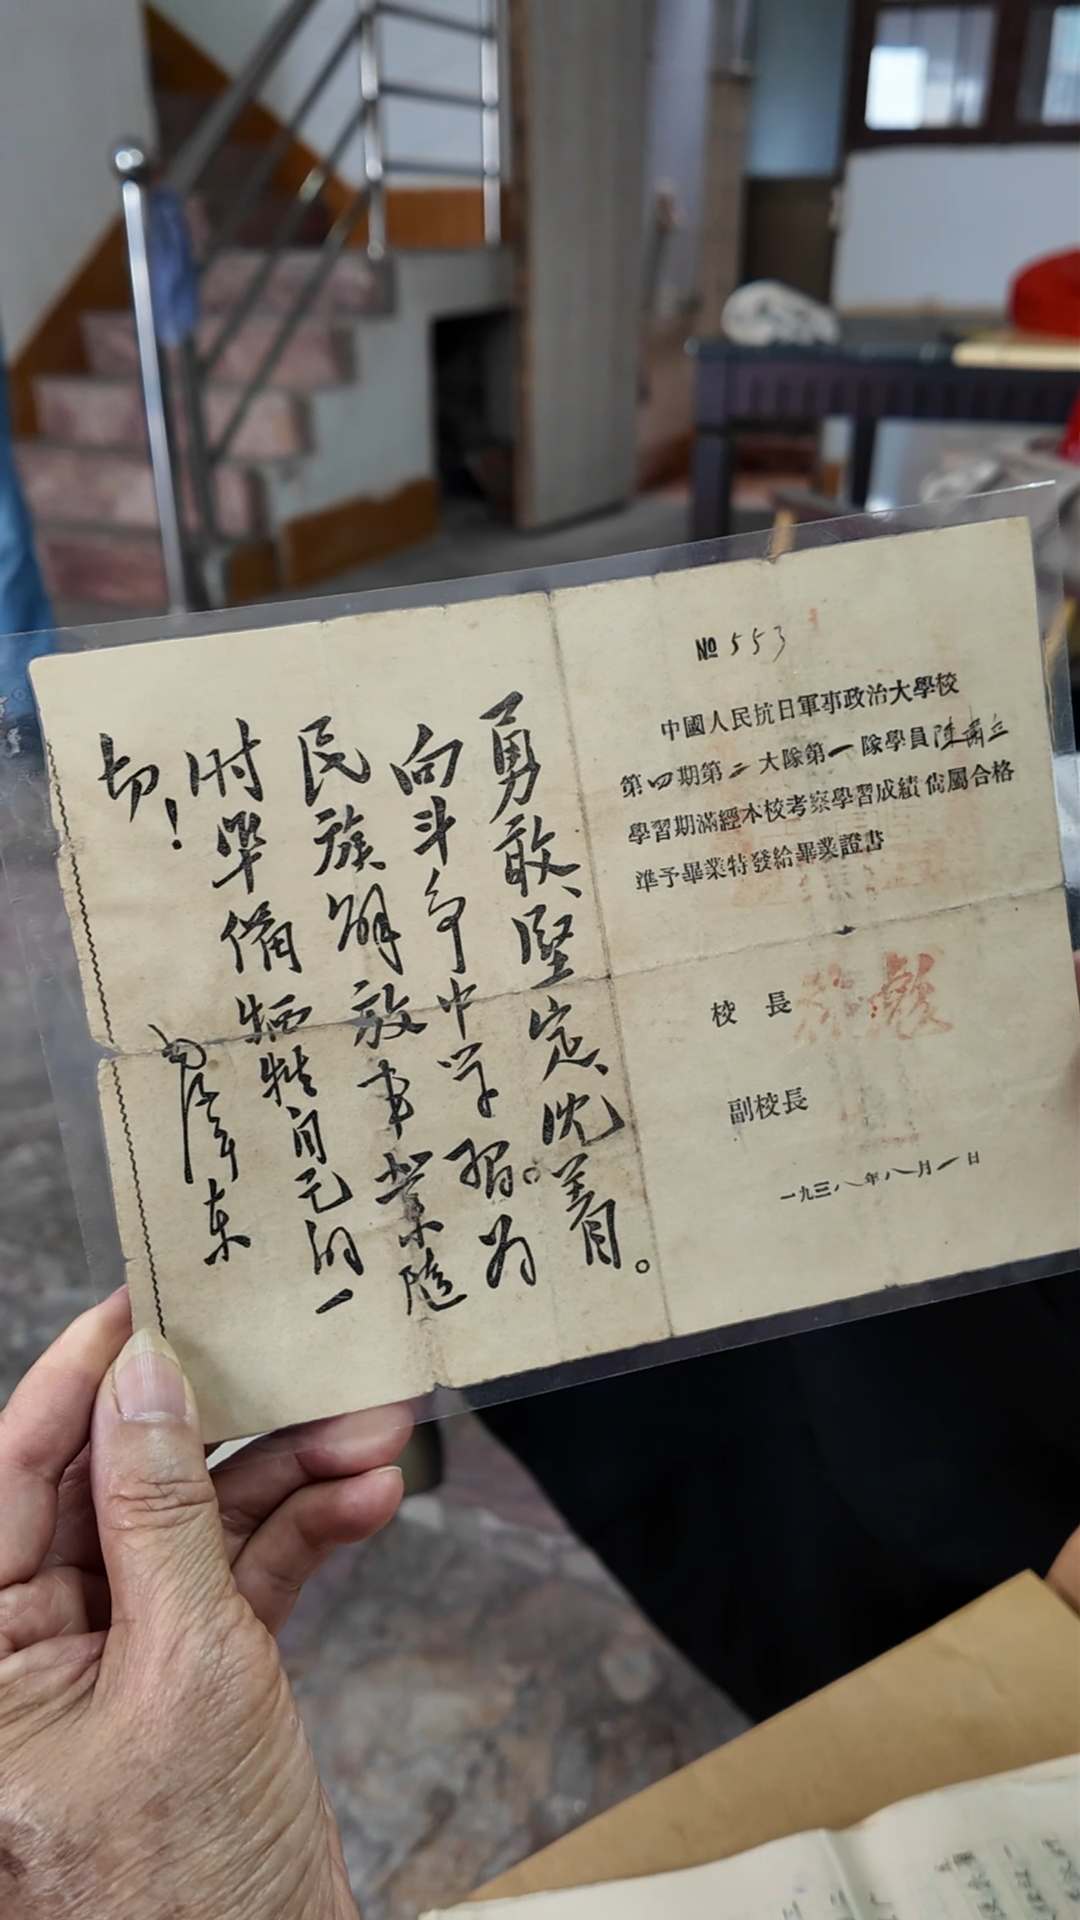 № 553
中國人民抗日軍事政治大學校
第四期第二大隊第一隊學員陳肅立
學習期滿經本校考察學習成績尚屬合格
準予畢業特發給畢業證書
校長 林彪
副校長
一九三八年八月一日
勇敢、堅定、沈着。
向斗争中学習。为
民族解放事業隨
时準備牺牲自己的一
切!
毛澤东